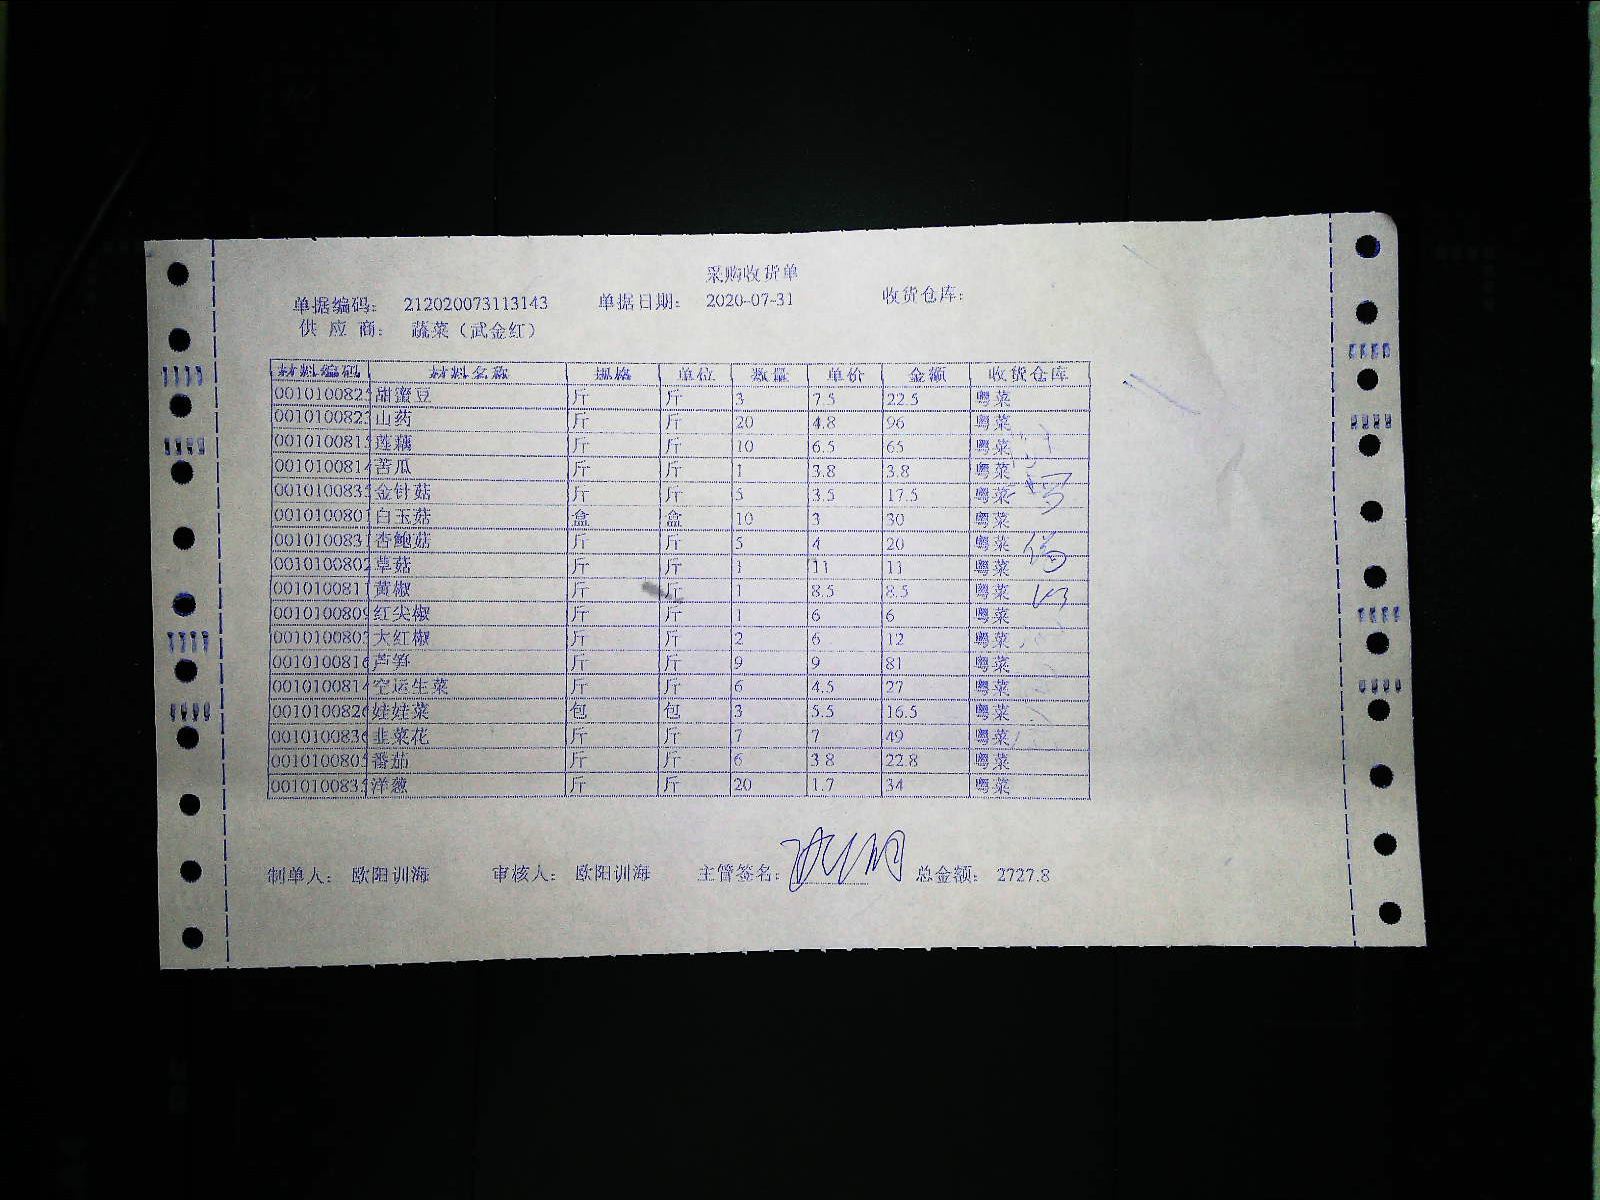 采购收货单
单据编码： 212020073113143 单据日期： 2020-07-31 收货仓库：
供 应 商： 蔬菜（武金红）
材料编码 材料名称 规格 单位 数量 单价 金额 收货仓库
0010100825 甜蜜豆 斤 斤 3 7.5 22.5 粤菜
001010082 山药 斤 斤 20 4.8 96 粤菜
001010081 莲藕 斤 斤 10 6.5 65 粤菜
001010081 苦瓜 斤 斤 1 3.8 3.8 粤菜
001010083 金针菇 斤 斤 5 3.5 17.5 粤菜
001010080 白玉菇 盒 盒 10 3 30 粤菜
001010083 杏鲍菇 斤 斤 5 4 20 粤菜
0010100802 草菇 斤 斤 1 11 11 粤菜
001010081 黄椒 斤 斤 1 8.5 8.5 粤菜
0010100809 红尖椒 斤 斤 1 6 6 粤菜
001010080 大红椒 斤 斤 2 6 12 粤菜
0010100816 芦笋 斤 斤 9 9 81 粤菜
001010081 空运生菜 斤 斤 6 4.5 27 粤菜
0010100826 娃娃菜 包 包 3 5.5 16.5 粤菜
0010100836 韭菜花 斤 斤 7 7 49 粤菜
0010100805 番茄 斤 斤 6 3.8 22.8 粤菜
001010083 洋葱 斤 斤 20 1.7 34 粤菜
制单人： 欧阳训海 审核人： 欧阳训海 主管签名： 总金额： 2727.8